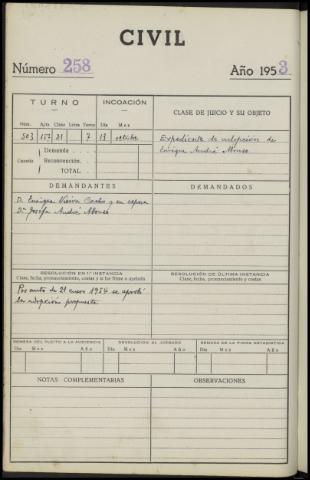 CIVIL
Número 258 Año 1953
TURNO INCOACIÓN CLASE DE JUICIO Y SU OBJETO
Núm. Apta. Clase Letra Turno Día Mes
503 157 21 7 13 octubre Expediente de adopción de
Enrique André Alonso
Demanda
Cuantía Reconvención.
TOTAL
DEMANDANTES DEMANDADOS
D. Enrique Vieira Castro y su esposa
Dª Josefa André Alonso
RESOLUCIÓN EN 1ª INSTANCIA RESOLUCIÓN DE ÚLTIMA INSTANCIA
Clase, fecha, pronunciamiento, costas y si fue firme o apelada Clase, fecha, pronunciamiento y costas
Por auto de 21 enero 1954 se aprobó
la adopción propuesta
REMESA DEL PLEITO A LA AUDIENCIA DEVOLUCIÓN AL JUZGADO REMESA DE LA FICHA ESTADÍSTICA
Día Mes Año Día Mes Año Día Mes Año
NOTAS COMPLEMENTARIAS OBSERVACIONES